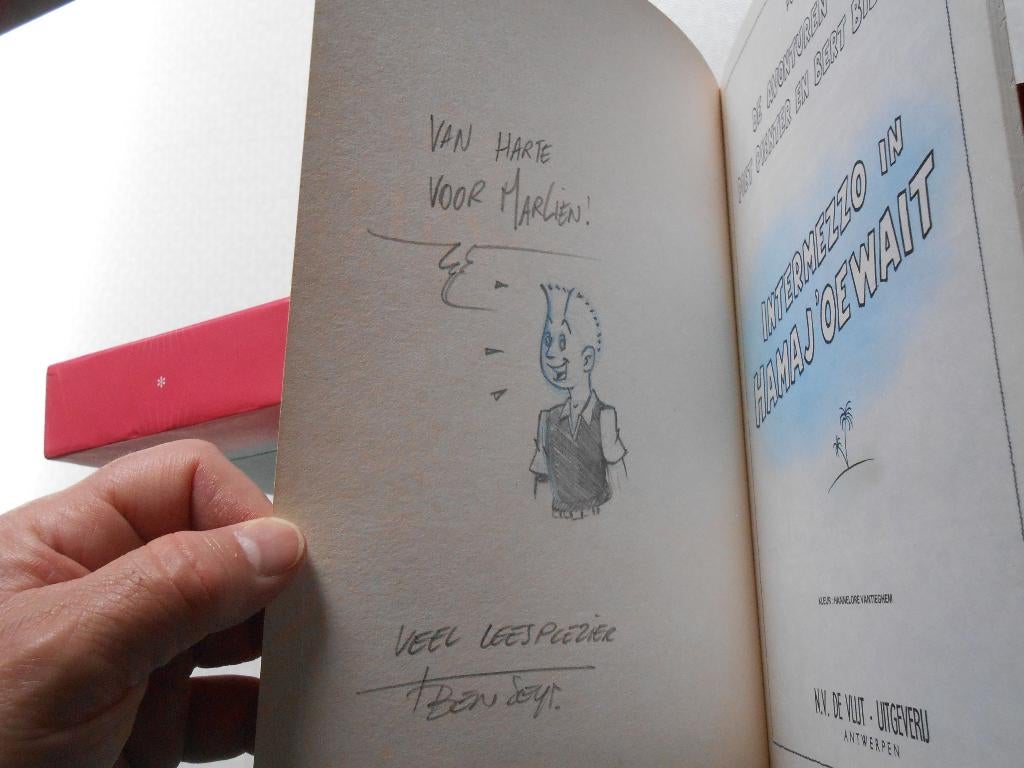 VAN HARTE
VOOR MARLIEN!
VEEL LEESPLEZIER
BEN
DE AVONTUREN
PIET PIENTER EN BERT
INTERMEZZO IN
HAMAJ'OEWAIT
KLEUR: HANNELORE VANTIEGHEM
N.V. DE VLIJT - UITGEVERIJ
ANTWERPEN